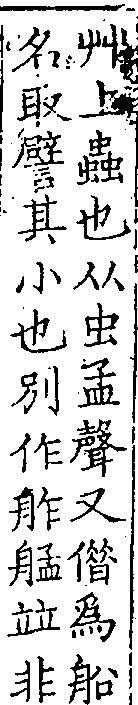 艸上蟲也从虫孟聲又僭爲船
名取譬其小也别作舴艋竝非